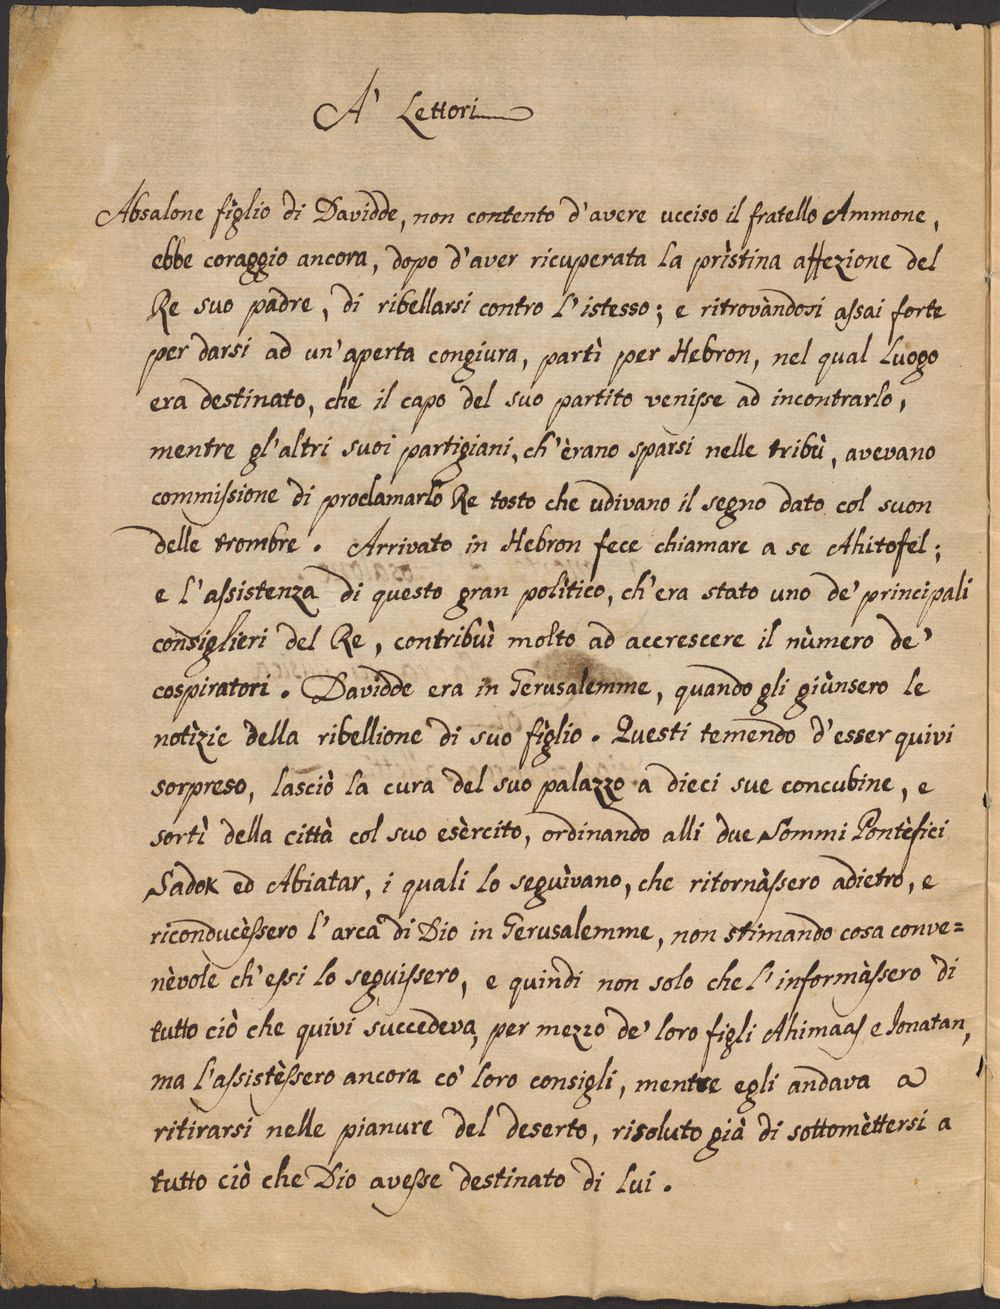 A' Lettori
Absalone fìglio di Davidde, non contento d'avere ucciso il fratello Ammone,
ebbe coraggio ancora, dopo d'aver ricuperata la prìstina affezione del
Re suo padre, di ribellarsi contro l'istesso; e ritrovàndosi assai forte
per darsi ad un'aperta congiura, partì per Hebron, nel qual luogo
era destinato, che il capo del suo partito venisse ad incontrarlo,
mentre gl'altri suoi partigiani, ch'èrano sparsi nelle tribù, avevano
commissione di proclamarlo Re tosto che udivano il segno dato col suon
delle trombre. Arrivato in Hebron fece chiamare a se Ahitofel;
e l'assistenza di questo gran polìtico, ch'era stato uno de' principali
consiglieri del Re, contribuì molto ad accrescere il nùmero de'
cospiratori. Davidde era in Gerusalemme, quando gli giùnsero le
notìzie della ribellione di suo fìglio. Questi temendo d'esser quivi
sorpreso, lasciò la cura del suo palazzo a dieci sue concubine, e
sortì della città col suo esèrcito, ordinando alli due Sommi Pontèfici
Sadok ed Abiatar, i quali lo seguìvano, che ritornàssero adietro, e
riconducèssero l'arca di Dio in Gerusalemme, non stimando cosa conve=
nèvole ch'essi lo seguissero, e quindi non solo che l'informàssero di
tutto ciò che quivi succedeva, per mezzo de' loro figli Ahimaas e Jonatan,
ma l'assistèssero ancora co' loro consigli, mentre egli andava a
ritirarsi nelle pianure del deserto, risoluto già di sottomèttersi a
tutto ciò che Dio avesse destinato di lui.